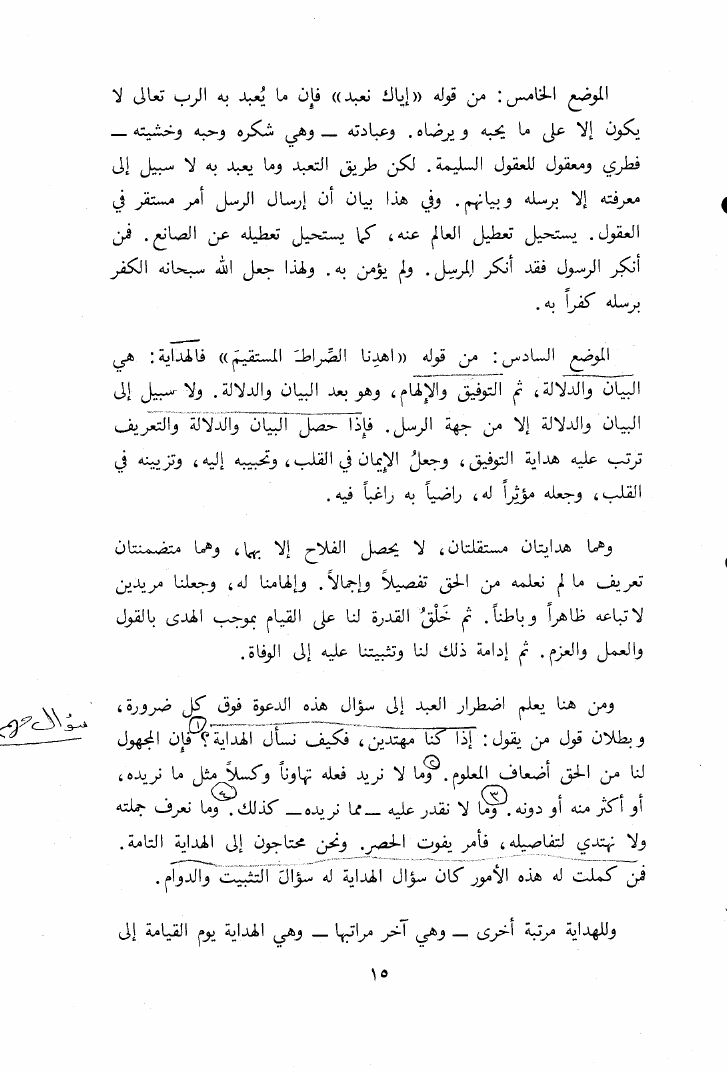 الموضع الخامس: من قوله «إياك نعبد» فإن ما يُعبد به الرب تعالى لا
يكون إلا على ما يحبه ويرضاه. وعبادته — وهي شكره وحبه وخشيته —
فطري ومعقول للعقول السليمة. لكن طريق التعبد وما يعبد به لا سبيل إلى
معرفته إلا برسله وبيانهم. وفي هذا بيان أن إرسال الرسل أمر مستقر في
العقول. يستحيل تعطيل العالم عنه، كما يستحيل تعطيله عن الصانع. فمن
أنكر الرسول فقد أنكر المرسِل. ولم يؤمن به. ولهذا جعل الله سبحانه الكفر
برسله كفراً به.
الموضع السادس: من قوله «اهدِنا الصِّراطَ المستقيمَ» فالهداية: هي
البيان والدلالة، ثم التوفيق والإلهام، وهو بعد البيان والدلالة. ولا سبيل إلى
البيان والدلالة إلا من جهة الرسل. فإذا حصل البيان والدلالة والتعريف
ترتب عليه هداية التوفيق، وجعلُ الإيمان في القلب، وتحبيبه إليه، وتزيينه في
القلب، وجعله مؤثِراً له، راضياً به راغباً فيه.
وهما هدايتان مستقلتان، لا يحصل الفلاح إلا بهما، وهما متضمنتان
تعريف ما لم نعلمه من الحق تفصيلاً وإجمالاً. وإلهامنا له، وجعلنا مريدين
لاتباعه ظاهراً وباطناً. ثم خَلْقُ القدرة لنا على القيام بموجب الهدى بالقول
والعمل والعزم. ثم إدامة ذلك لنا وتثبيتنا عليه إلى الوفاة.
ومن هنا يعلم اضطرار العبد إلى سؤال هذه الدعوة فوق كل ضرورة،
سؤال مهم
وبطلان قول من يقول: إذا كنا مهتدين، فكيف نسأل الهداية؟ ١ فإن المجهول
لنا من الحق أضعاف المعلوم. ٢ وما لا نريد فعله تهاوناً وكسلاً مثل ما نريده،
أو أكثر منه أو دونه. ٣ وما لا نقدر عليه — مما نريده — كذلك. ٤ وما نعرف جملته
ولا نهتدي لتفاصيله، فأمر يفوت الحصر. ونحن محتاجون إلى الهداية التامة.
فمن كملت له هذه الأمور كان سؤال الهداية له سؤالَ التثبيت والدوام.
وللهداية مرتبة أخرى — وهي آخر مراتبها — وهي الهداية يوم القيامة إلى
١٥